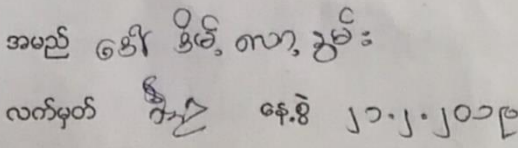 အမည် ဒေါ် နိမ့် လာ့ ခွမ်း
လက်မှတ် နေ့စွဲ ၂၁.၂.၂၀၁၉